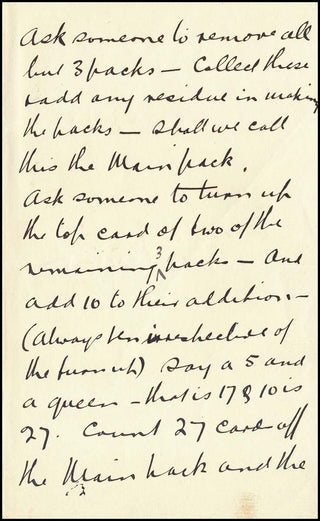 Ask someone to remove all
but 3 packs — Collect these
& add any residue in making
the packs — shall we call
this the Main pack.
Ask someone to turn up
the top card of two of the
remaining 3 packs — And
add 10 to their addition —
(Always ten irrespective of
the turn up) Say a 5 and
a queen — that is 17 & 10 is
27. Count 27 cards off
the Main pack and the